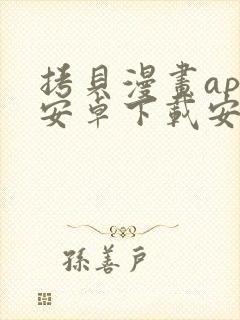 拷貝漫畫ap
安卓下載安
孫善戶